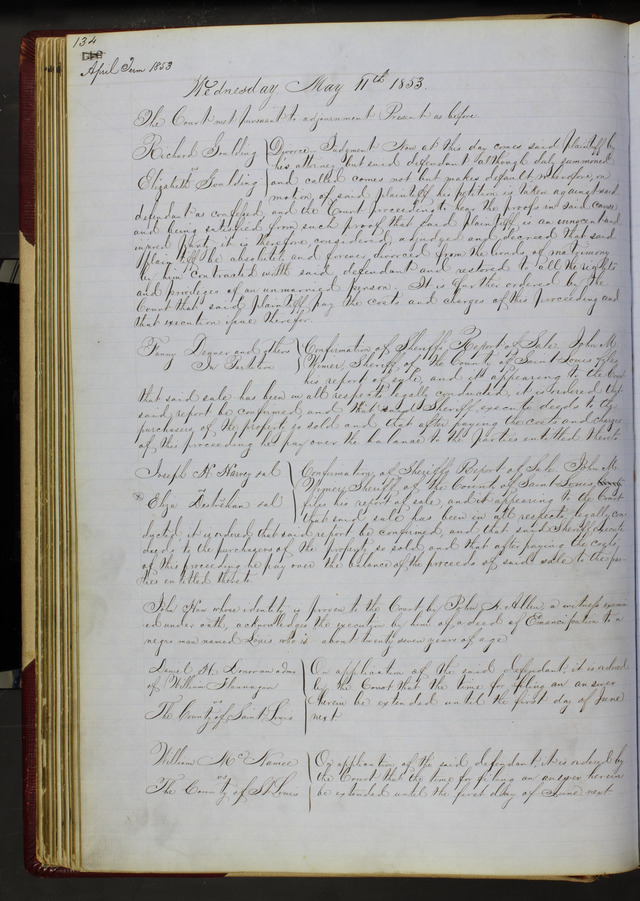 134
April Term 1853
Wednesday May 11th 1853.
The Court met pursuant to adjournment Present as before.
Richard Goulding
vs
Elizabeth Goulding
Divorce Judgment Now at this day comes said plaintiff by
his attorney but said defendant although duly summoned
and called comes not but makes default, wherefore, on
motion of said plaintiff his petition is taken against said
defendant as confessed, and the Court proceeding to hear the proofs in said cause
and being satisfied from such proof that said plaintiff is an innocent and
injured party, it is therefore considered adjudged and decreed that said
plaintiff be absolutely and forever divorced from the bonds of matrimony
by him contracted with said defendant and restored to all the rights
and privileges of an unmarried person. It is further ordered by the
Court that said plaintiff pay the costs and charges of this proceeding and
that execution issue therefor.
Fanny and others
In Partition
Confirmation of Sheriffs Report of Sale John M.
Wimer, Sheriff of the County of Saint Louis files
his report of sale, and it appearing to the Court
that said sale has been in all respects legally conducted, it is ordered that
said report be confirmed and that said Sheriff execute deeds to the
purchasers of the property so sold and that after paying the costs and charges
of this proceeding he pay over the balance to the parties entitled thereto
Joseph
vs
Eliza
Confirmation of Sheriffs Report of Sale John M.
Wimer, Sheriff of the County of Saint Louis,
files his report of sale, and it appearing to the Court
that said sale has been in all respects legally con
ducted, it is ordered that said report be confirmed, and that said Sheriff execute
deeds to the purchasers of the property so sold and that after paying the costs
of this proceeding he pay over the balance of the proceeds of said sale to the par
ties entitled thereto
John How whose identity is proven to the Court by John a witness exam
ed under oath, acknowledges the execution by him of a deed of Emancipation to a
negro man named Louis who is about twenty seven years of age
H. Donovan adm
of William Flannagan
vs
The County of Saint Louis
On application of the said defendant, it is ordered
by the Court that the time for filing an answer
herein be extended until the first day of June
next
William McNamee
vs
The County of St Louis
On application of the said defendant, it is ordered by
the Court that the time for filing an answer herein
be extended until the first day of June next